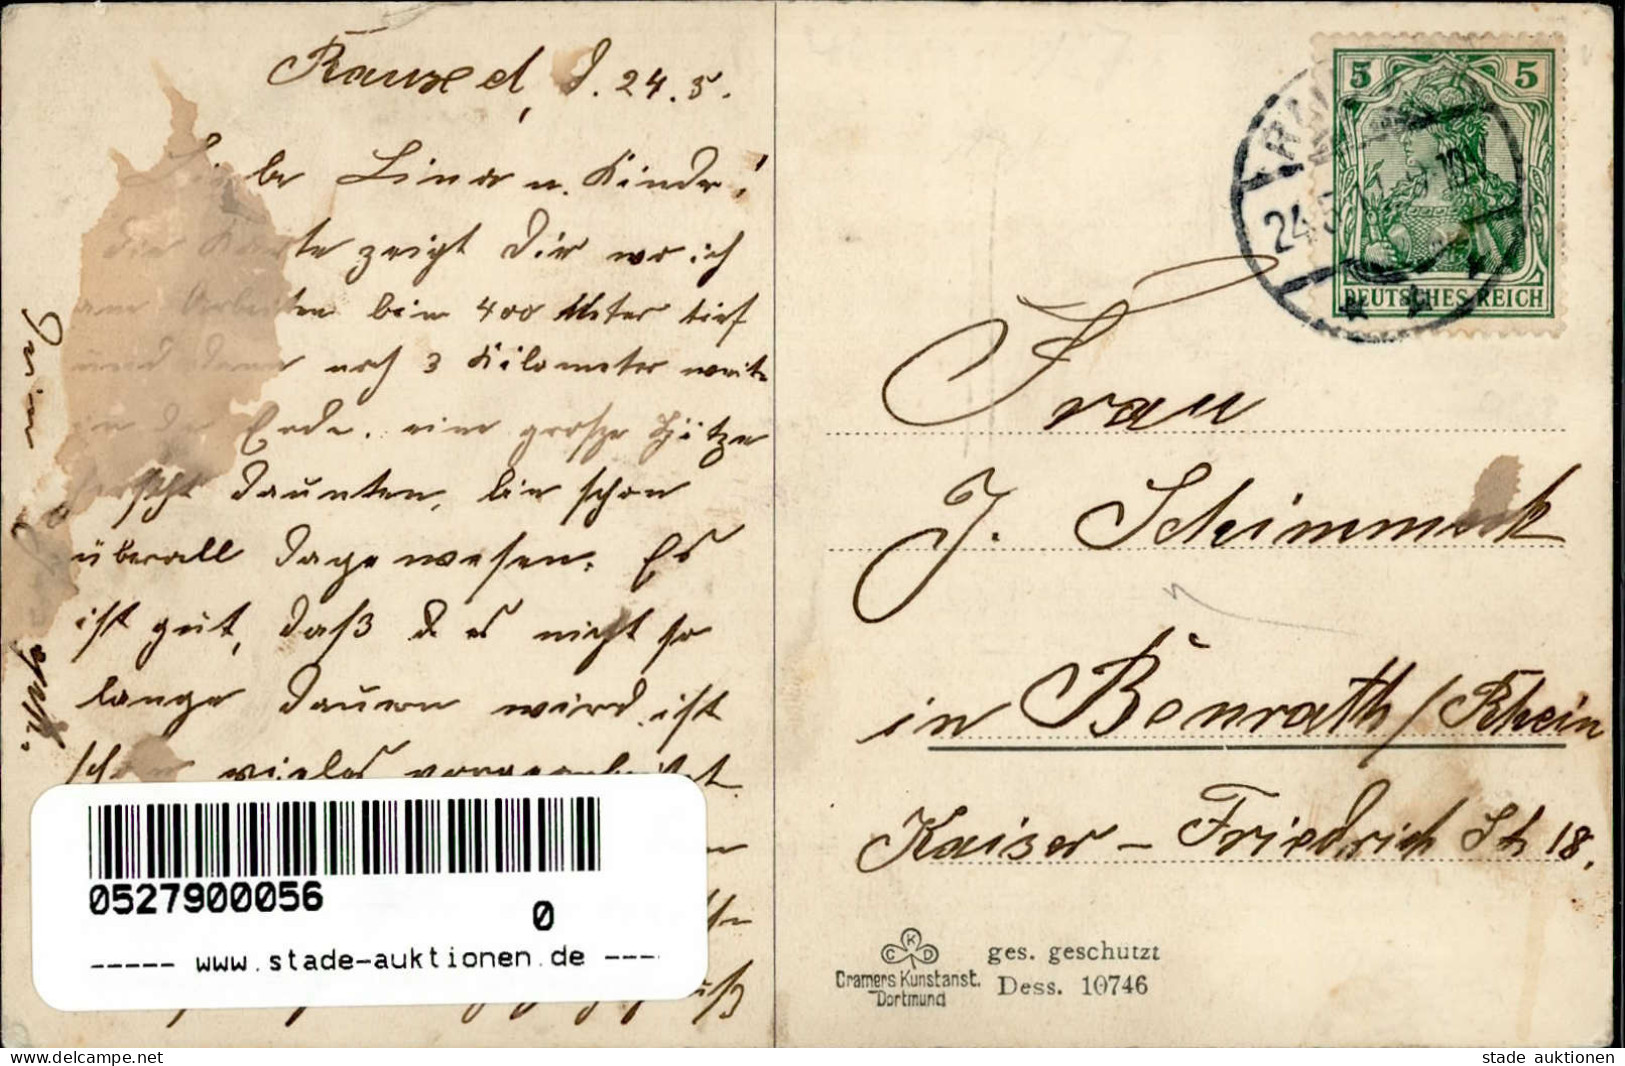 Rauxel, d. 24.5.
Liebe Lina u. Kinder!
die Karte zeigt Dir wo ich
am Arbeiten bin 400 Meter tief
und dann noch 3 Kilometer weit
in der Erde. eine grosze Hitze
herscht daunten, bin schon
überall dage wesen. Es
ist gut, daß d es nicht so
lange dauern wird. ist
schon vieles vorgearbeitet.
0527900056
0
----- www.stade-auktionen.de ----
5 5
DEUTSCHES REICH
24.5.
Frau
J. Schimmeck
in Benrath / Rhein
Kaiser - Friedrich St 18.
C K D
Cramers Kunstanst.
Dortmund
ges. geschützt
Dess. 10746
0527900056
stade auktionen